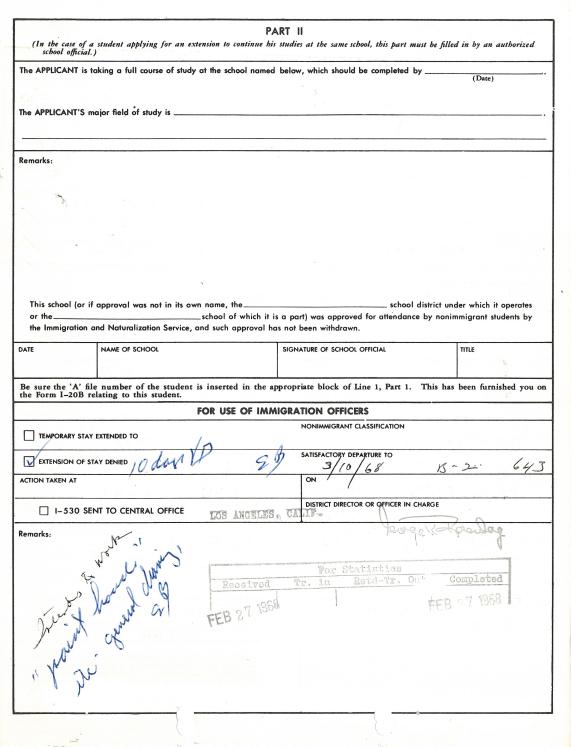 PART II
(In the case of a student applying for an extension to continue his studies at the same school, this part must be filled in by an authorized
school official.)
The APPLICANT is taking a full course of study at the school named below, which should be completed by
(Date)
The APPLICANT'S major field of study is
Remarks:
This school (or if approval was not in its own name, the school district under which it operates
or the school of which it is a part) was approved for attendance by nonimmigrant students by
the Immigration and Naturalization Service, and such approval has not been withdrawn.
DATE NAME OF SCHOOL SIGNATURE OF SCHOOL OFFICIAL TITLE
Be sure the 'A' file number of the student is inserted in the appropriate block of Line 1, Part 1. This has been furnished you on
the Form I-20B relating to this student.
FOR USE OF IMMIGRATION OFFICERS
NONIMMIGRANT CLASSIFICATION
TEMPORARY STAY EXTENDED TO
EXTENSION OF STAY DENIED 10 days VD
SATISFACTORY DEPARTURE TO
3/10/68 B-2 643
ACTION TAKEN AT ON
I-530 SENT TO CENTRAL OFFICE
LOS ANGELES, CALIF.
DISTRICT DIRECTOR OR OFFICER IN CHARGE
Remarks:
For Statistics
Received Tr. in Completed
FEB 27 1968 FEB 27 1968
work
"paint
general